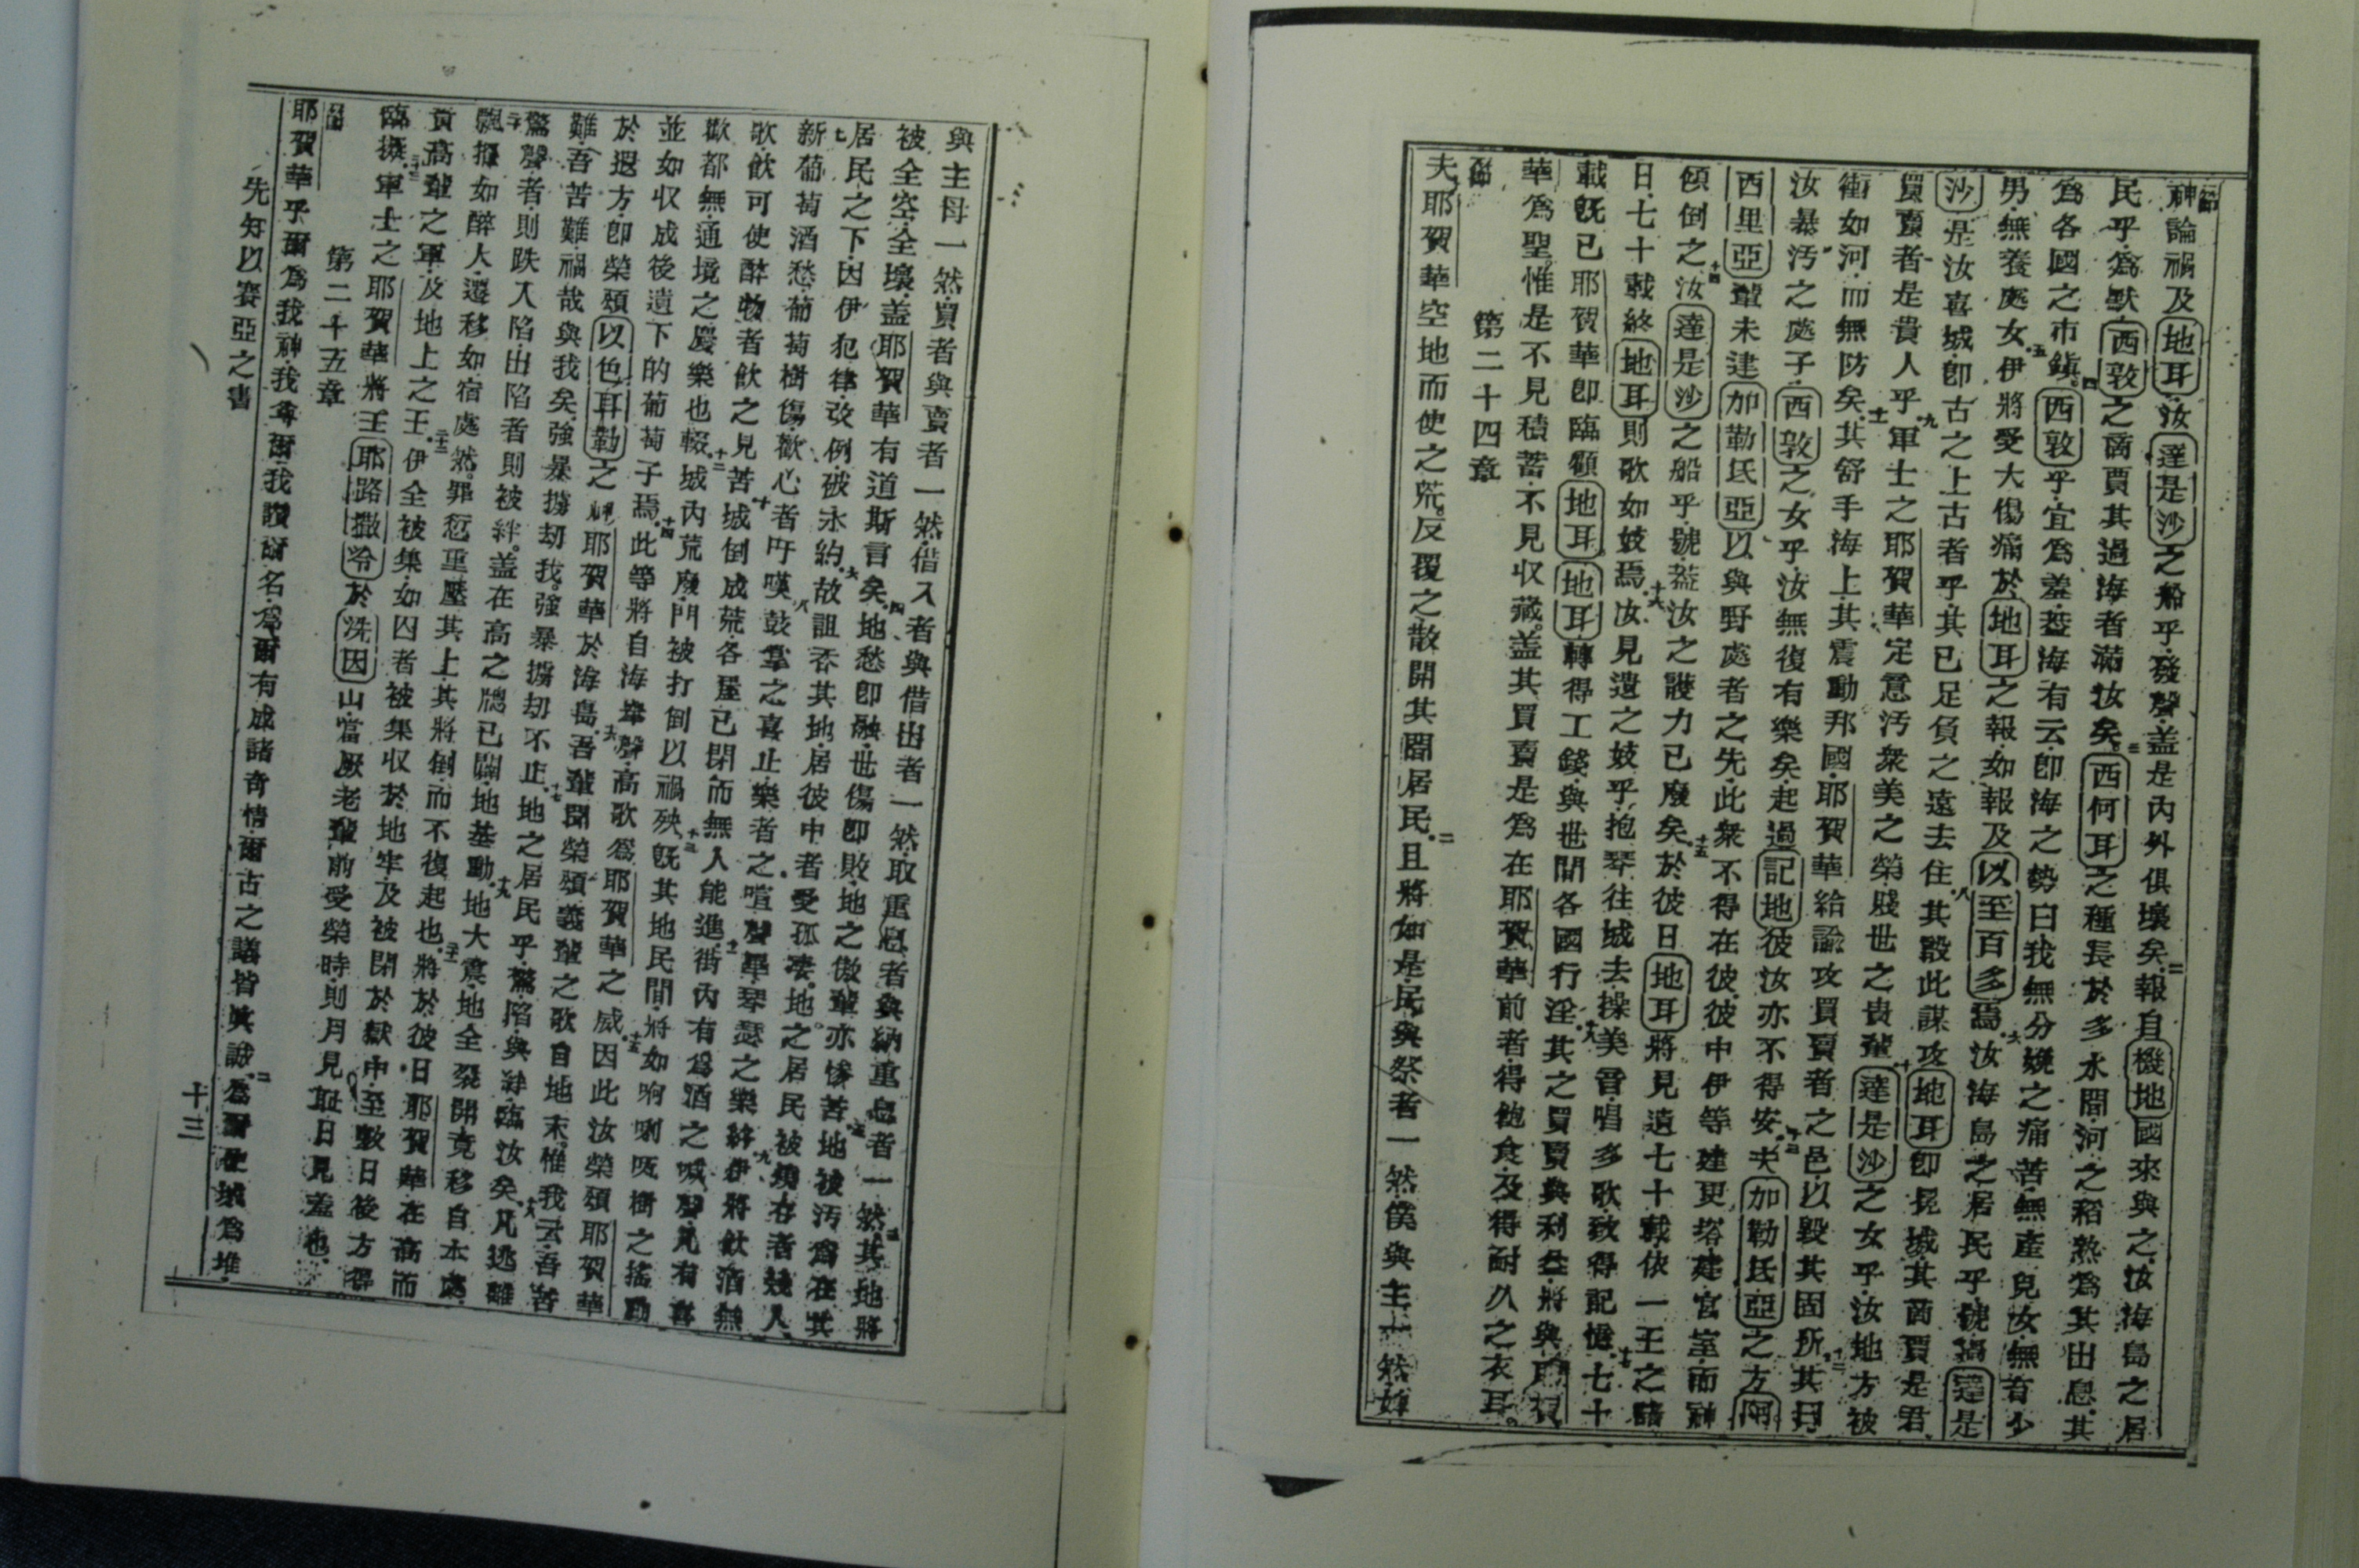 神諭禍及地耳汝達是沙之船乎發聲盖是內外俱壞矣二報自機地國來與之汝海島之居
民乎為默西敦之啇賈其過海者滿汝矣三西何耳之種長於多水間河之稻熟為其出息其
為各國之市鎮四西敦乎宜為羞葢海有云卽海之勢曰我無分娩之痛苦無產兒汝無育少
男無養處女五伊將受大傷痛於地耳之報如報及以至百多焉六汝海島之居民乎號過達是
沙是汝喜城卽古之上古者乎其已足負之遠去住八其毀此謀攻地耳卽冕城其啇賈是君
買賣者是貴人乎九軍士之耶賀華定意汚衆美之榮賤世之貴輩十達是沙之女乎汝地方被
衝如河而無防矣十一其舒手海上其震動邦國耶賀華給諭攻買賣者之邑以毀其固所十二其曰
汝暴汚之處子西敦之女乎汝無復有樂矣起過記地彼汝亦不得安十三夫加勒氐亞之方阿
西里亞輩未建加勒氐亞以與野處者之先此衆不得在彼彼中伊等建更塔建宮室而神
傾倒之十四汝達是沙之船乎號葢汝之護力已廢矣十五於彼日地耳將見遺七十載依一王之諸
日七十載終地耳則歌如妓焉十六汝見遺之妓乎抱琴往城去操美音唱多歌致得記憶十七七十
載旣已耶賀華卽臨顧地耳地耳轉得工錢與世間各國行淫十八其之買賣與利益將與耶賀
華為聖惟是不見積蓄不見收藏盖其買賣是為在耶賀華前者得飽食及得耐久之衣耳
第二十四章
夫耶賀華空地而使之荒反覆之散開其間居民二且將如是民與祭者一然僕與主一然婢
與主母一然買者與賣者一然借入者與借出者一然取重息者與納重息者一然三其地將
被全空全壞盖耶賀華有道斯言矣四地愁卽融世傷卽敗地之傲輩亦慘苦五地被汚為在其
居民之下因伊犯律改例被永約六故詛吞其地居彼中者受孤凄地之居民被燒存者幾人
七新葡萄酒愁葡萄樹傷歡心者吁嘆八鼓掌之喜止樂者之喧聲畢琴瑟之樂終九伊將飲酒無
歌飲可使醉物者飲之見苦十城倒成荒各屋已閉而無人能進十一街內有為酒之喊聲凡有喜
歡都無通境之慶樂也輟十二城內荒廢門被打倒以禍殃十三旣其地民間將如响唎㕭樹之搖動
並如收成後遺下的葡萄子焉十四此等將自海舉聲高歌為耶賀華之威十五因此汝榮頌耶賀華
於遐方卽榮頌以色耳勒之神耶賀華於海島十六吾輩聞榮頌義輩之歌自地末惟我云吾苦
難吾苦難禍哉與我矣強暴擄刼我強暴擄刼不止十七地之居民乎驚陷與絆臨汝矣十八凡逃離
驚聲者則跌入陷出陷者則被絆盖在高之牕已開地基動十九地大震地全裂開竟移自本處
二十飄搖如醉人遷移如宿處然罪愆重壓其上其將倒而不復起也二十一將於彼日耶賀華在高而
責高輩之軍及地上之王二十二伊全被集如囚者被集收於地牢及被閉於獄中至數日後方得
臨擬二十三軍士之耶賀華將王耶路撒冷於洗因山當厥老輩前受榮時則月見耻日見羞也
第二十五章
耶賀華乎爾為我神我尊爾我讚爾名為爾有成諸奇情爾古之議皆眞誠二為爾使城為堆
先知以賽亞之書
十三